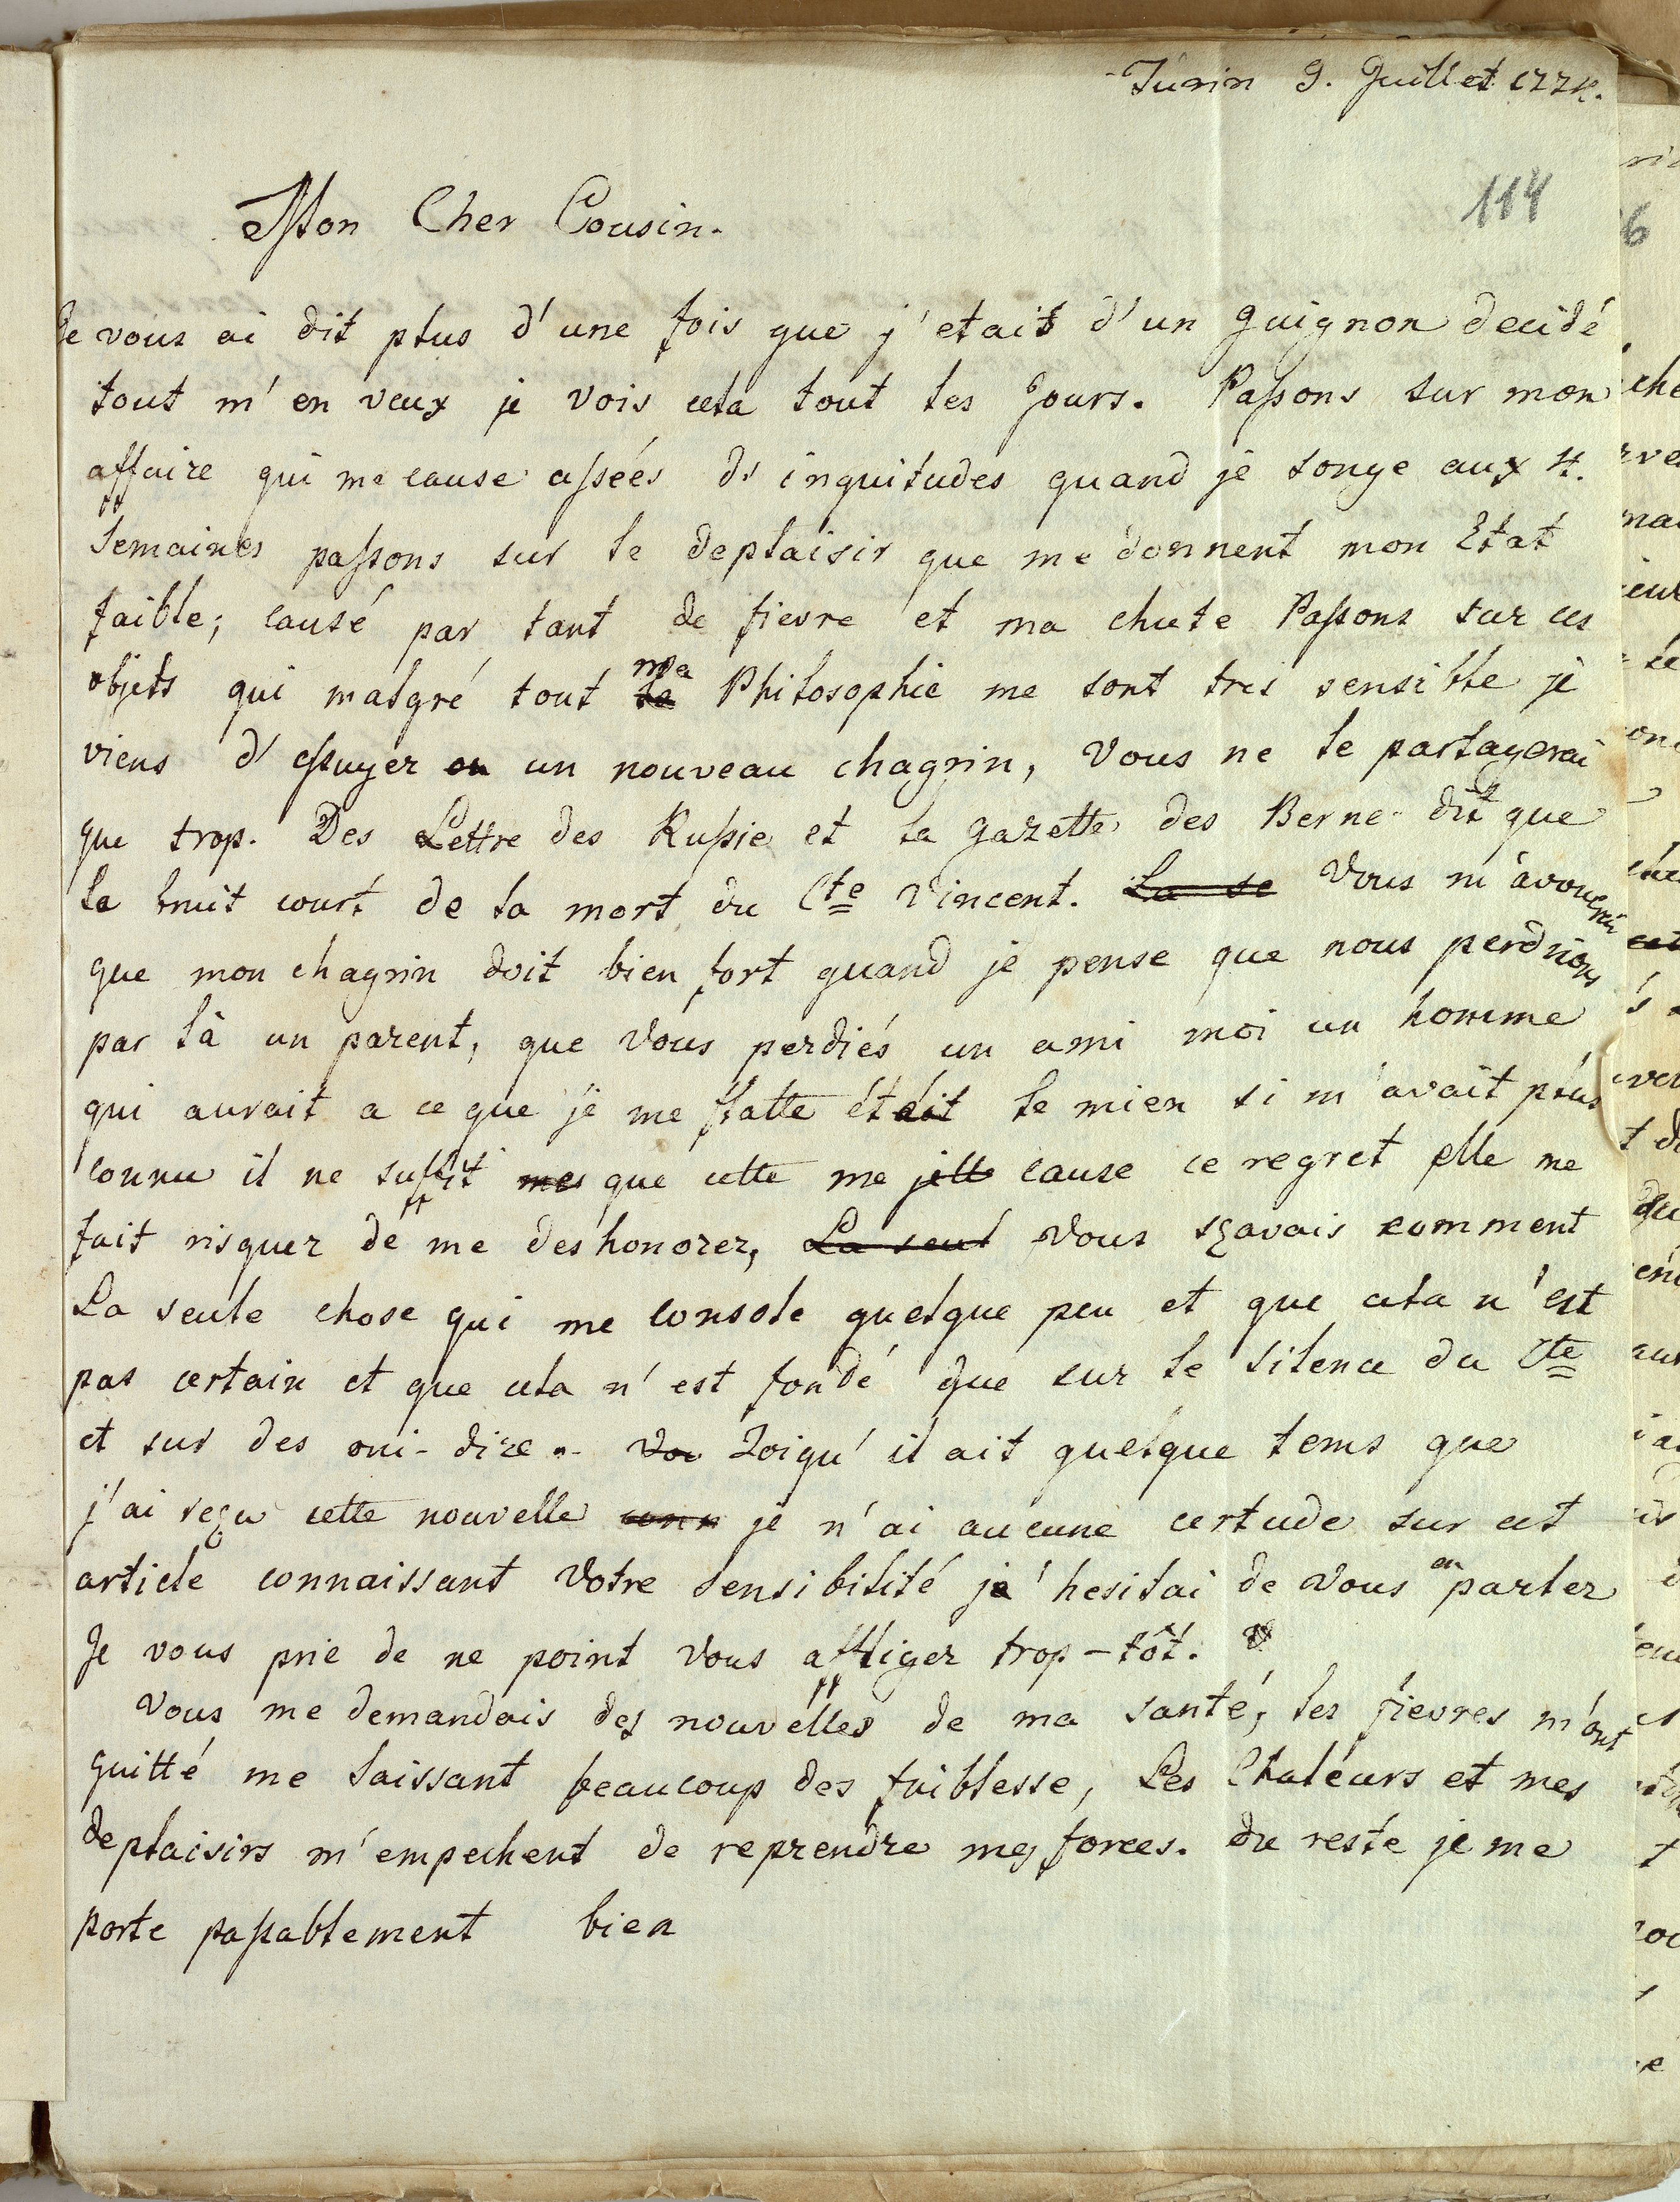 Turin 9. Juillet 1774.
114
Mon Cher Cousin.
Je vous ai dit plus d'une fois que j'etais d'un guignon decidé
tout m'en veux je vois cela tout les Jours. Passons sur mon
affaire qui me cause assées ds inquitudes quand je songe aux 4.
Semaines passons sur le deplaisir que me donnent mon Etat
faible; causé par tant de fievre et ma chute Passons sur ces
objets qui malgré tout ma Philosophie me sont tres sensible je
viens d'essuyer un nouveau chagrin, Vous ne le partagerai
que trop. Des Lettre des Russie et la gazette des Berne dit que
le bruit court de la mort du Cte Vincent. La se Vous m'avouerai
que mon chagrin doit bien fort quand je pense que nous perdrions
par là un parent, que Vous perdiés un ami moi un homme
qui aurait a ce que je me flatte était le mien si m'avait plus
connu il ne suffit mes que cette me jette cause ce regret elle me
fait risquer de me deshonorer, La seul Vous sçavais comment
La seule chose qui me console quelque peu et que cela n'est
pas certain et que cela n'est fondé que sur le silence du Cte
et sur des oui-dire. Vou Zoiqu'il ait quelque tems que
j'ai reçu cette nouvelle conn je n'ai aucune certude sur cet
article connaissant Votre sensibilité je hesitai de Vous en parler
Je vous prie de ne point Vous affliger trop-tôt.
Vous me demandais des nouvelles de ma santé, les fievres m'ont
quitté me laissant beaucoup des faiblesse, Les Chaleurs et mes
deplaisirs m'empechent de reprendre mes forces. du reste je me
porte passablement bien